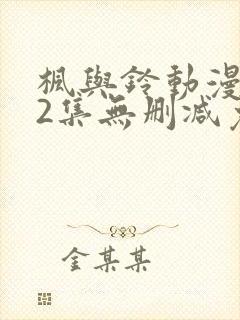 楓與鈴動漫
2集無刪減
金某某